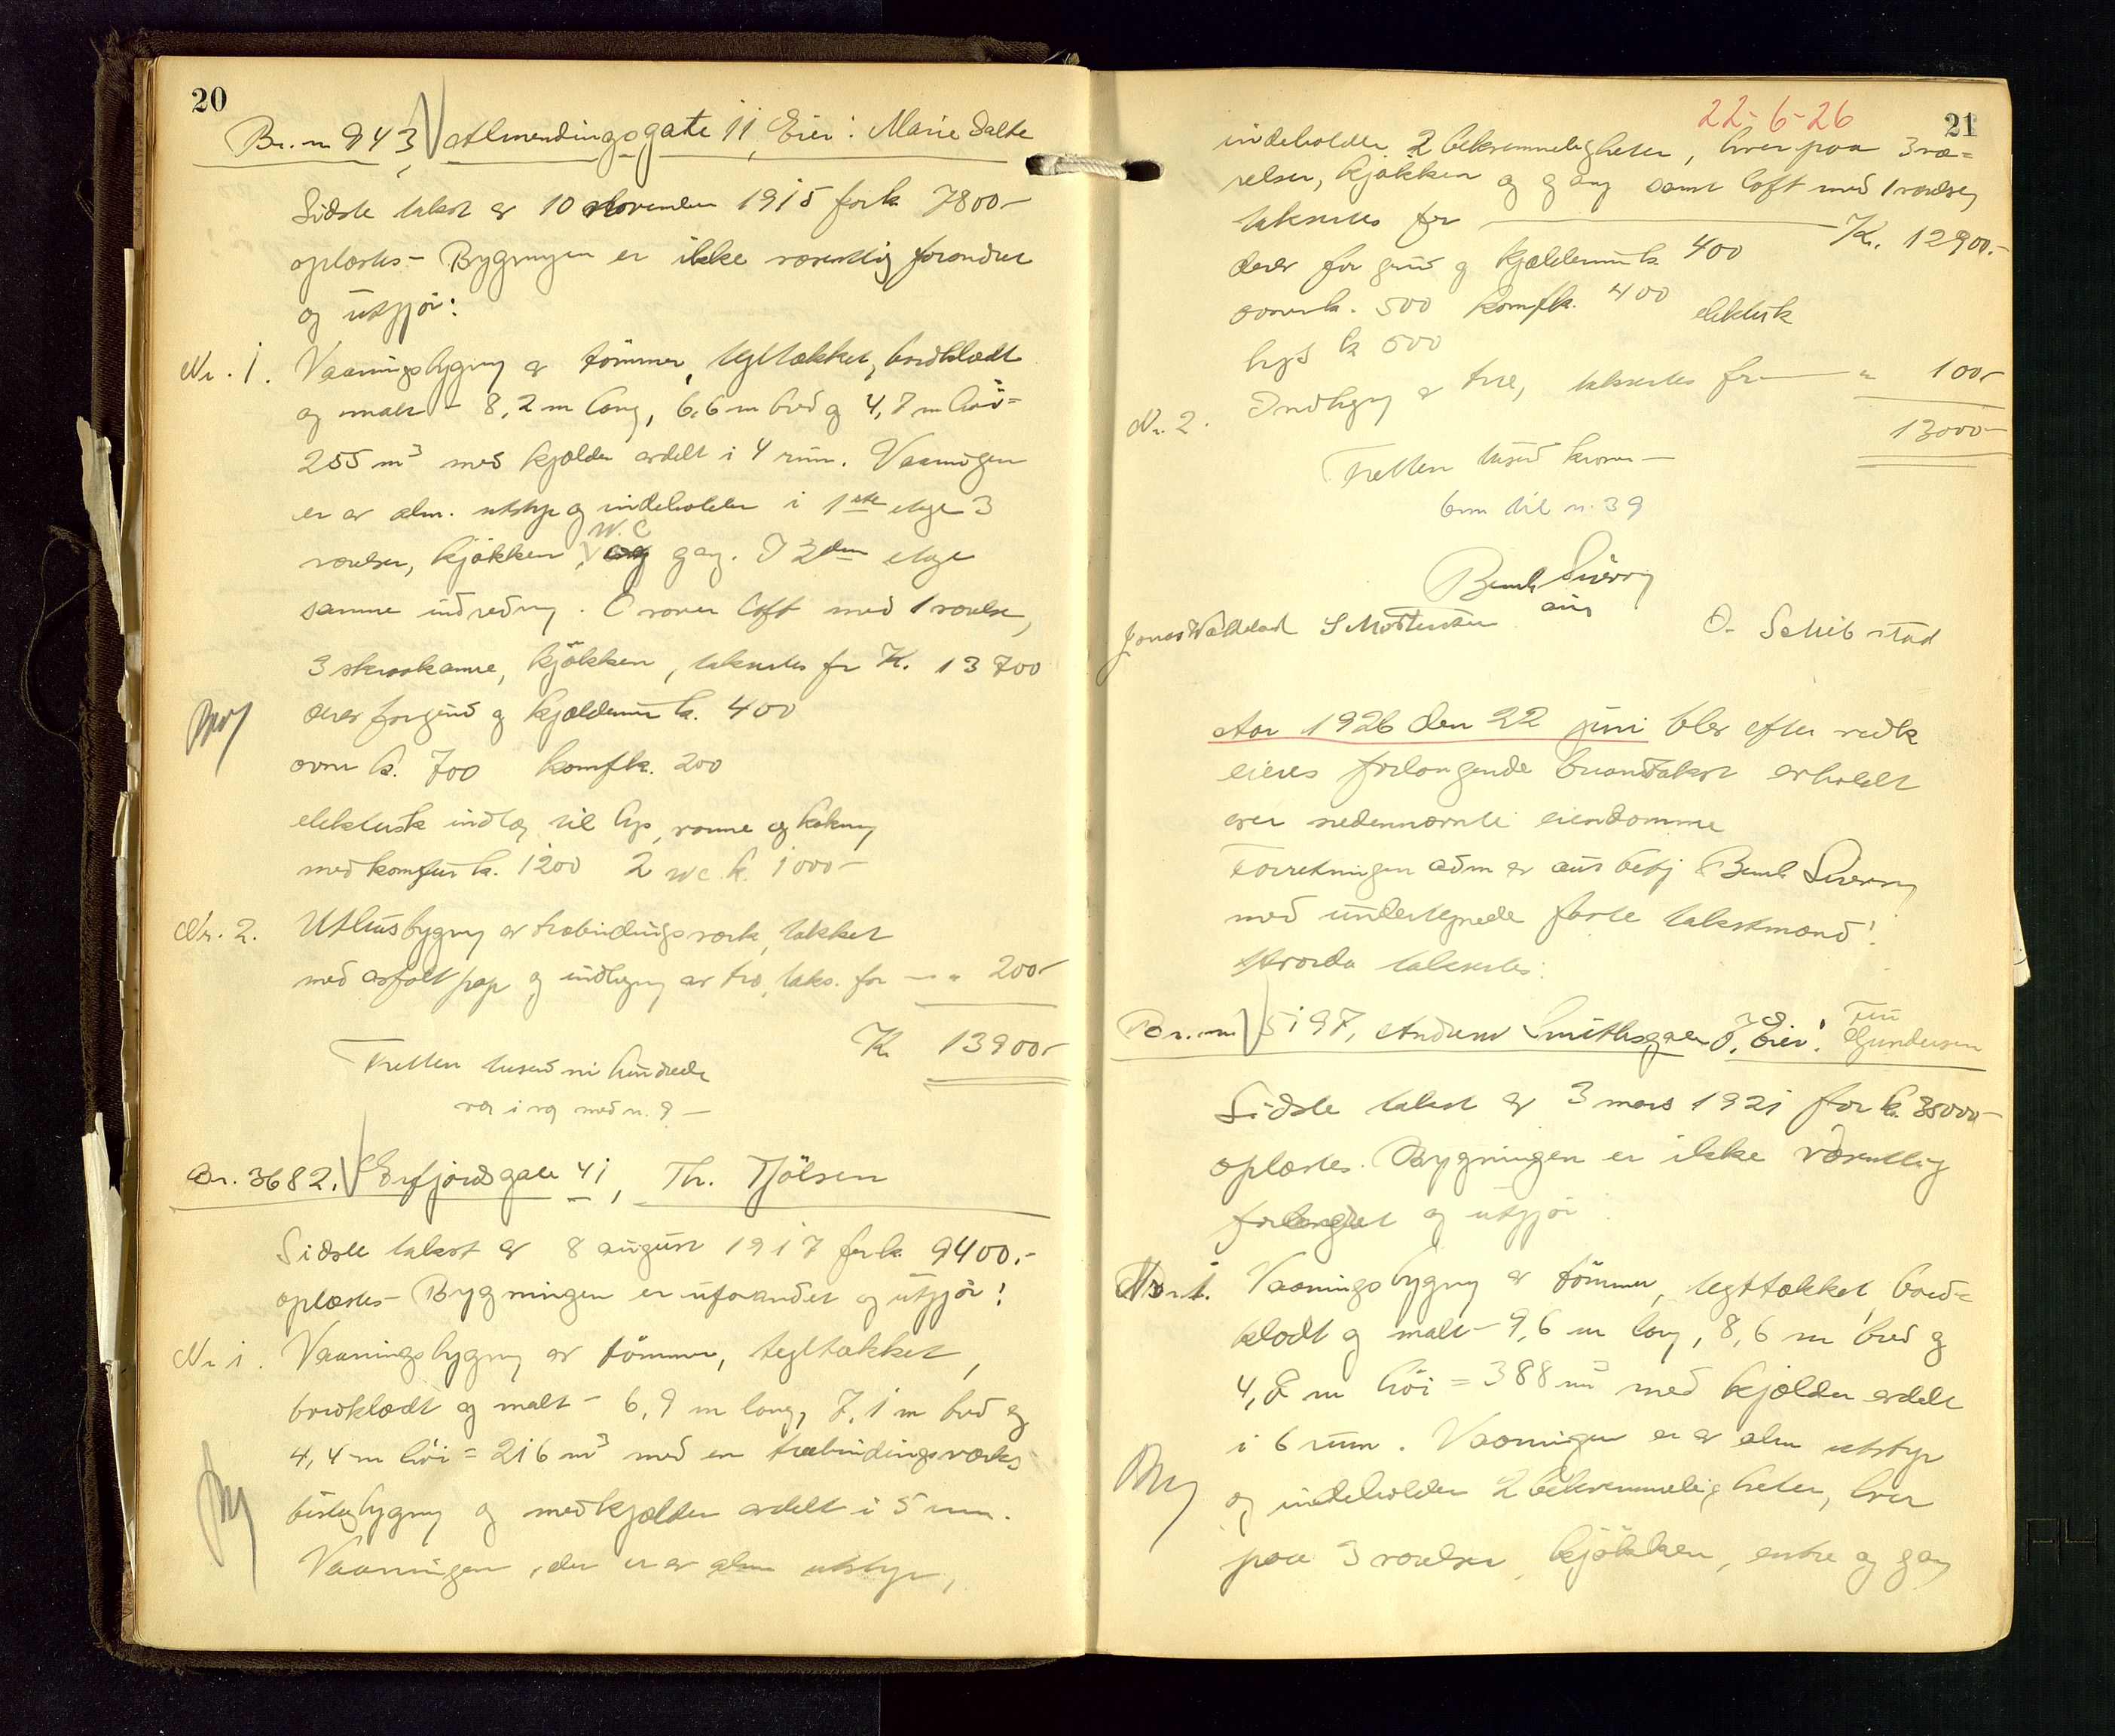 20
Br. nr 943, Almendingsgate 11, Eier: Marie Salte
Sidste takst av 10 november 1915 for k. 7800-
oplæstes- Bygningen er ikke væsentlig forandret
og utgjør:
Nr. 1. Vaaningsbygning av tømmer, tegltækket, bordklædt
og malt - 8,2 m lang, 6,6 m bred og 4,7 m høi=
255 m³ med kjelder avdelt i 4 rum. Vaaningen
er av alm. utstyr og indeholder i 1ste etage 3
W.C
værelser, kjøkken, og gang. I 2den etage
samme indredning. Ovover loft med 1 værelse,
3 skraakamre, kjøkken, taksertes for K. 13700
derav for grund og kjældermur k. 400
ovne k. 700 komf k. 200
elektrisk indlæg til lys, varme og kokning
med komfur k. 1200 2 wc. k. 1000-
Nr. 2. Uthusbygning av træbindingsverk, tækket
med asfalt pap og indhegning av træ, taks. for — " 200-
K. 13900-
Tretten tusend ni hundrede
væg i væg med n. 9 —
Br. 3682. Erfjordsgate 41, Th. Tjølsen
Sidste takst av 8 august 1917 for k. 9400.-
oplæstes- Bygningen er uforandret og utgjør:
Nr 1. Vaaningsbygning av tømmer, tegltækket,
bordklædt og malt - 6,9 m lang, 7,1 m bred og
4,4 m høi = 216 m³ med en træbindingsverks
bislagbygning og med kjelder avdelt i 5 rum.
Vaaningen, der er av alm utstyr,
22-6-26
21
indeholder 2 bekvemmeligheter, hver paa 3 væ=
relser, kjøkken og gang samt loft med 1 værelse,
taksertes for — K. 12900.-
derav for grund og kjældermur k. 400
ovner k. 500 komf k. 400 elektrisk
lys k 500
Nr. 2. Indhegning av træ, taksertes for — " 100-
13000-
Tretten tusend kroner —
6 m til n. 39
Bernh Sverny
aut
Jonas Waldeland S Mortensen O. Schibstad
Aar 1926 den 22 juni blev efter vedk
eieres forlangende brandtakst avholdt
over nedennævnte eiendomme
Forretningen adm av aut bestj Bernh Sverny
med undertegnede faste takstmænd:
Hvorda taksertes:
Br. nr 5197, Andrew Smithsgate 7, Eier: Gundersen
Sidste takst av 3 mars 1921 for k. 35000-
oplæstes. Bygningen er ikke væsentlig
forandret og utgjør:
Nr. 1. Vaaningsbygning av tømmer, tegltækket, bord=
klædt og malt - 9,6 m lang, 8,6 m bred og
4,8 m høi = 388 m³ med kjelder avdelt
i 6 rum. Vaaningen er av alm utstyr
og indeholder 2 bekvemmeligheter, hver
paa 3 værelser, kjøkken, entre og gang